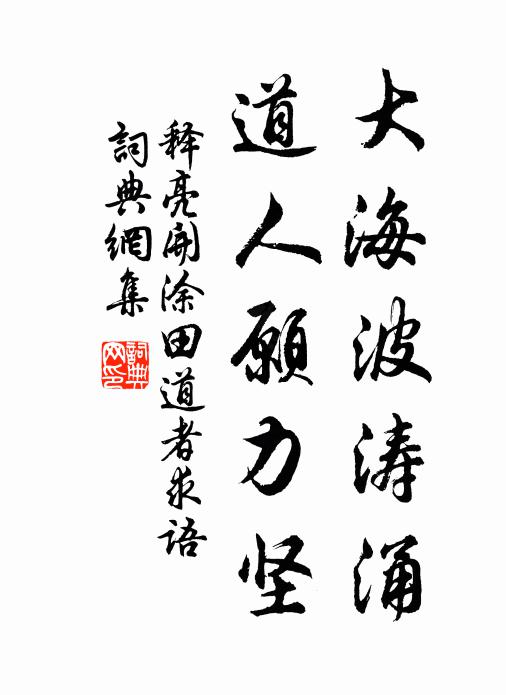 大海波涛涌
道人愿力坚
释亮开涂田道者求语
詞典網集
詞典网印